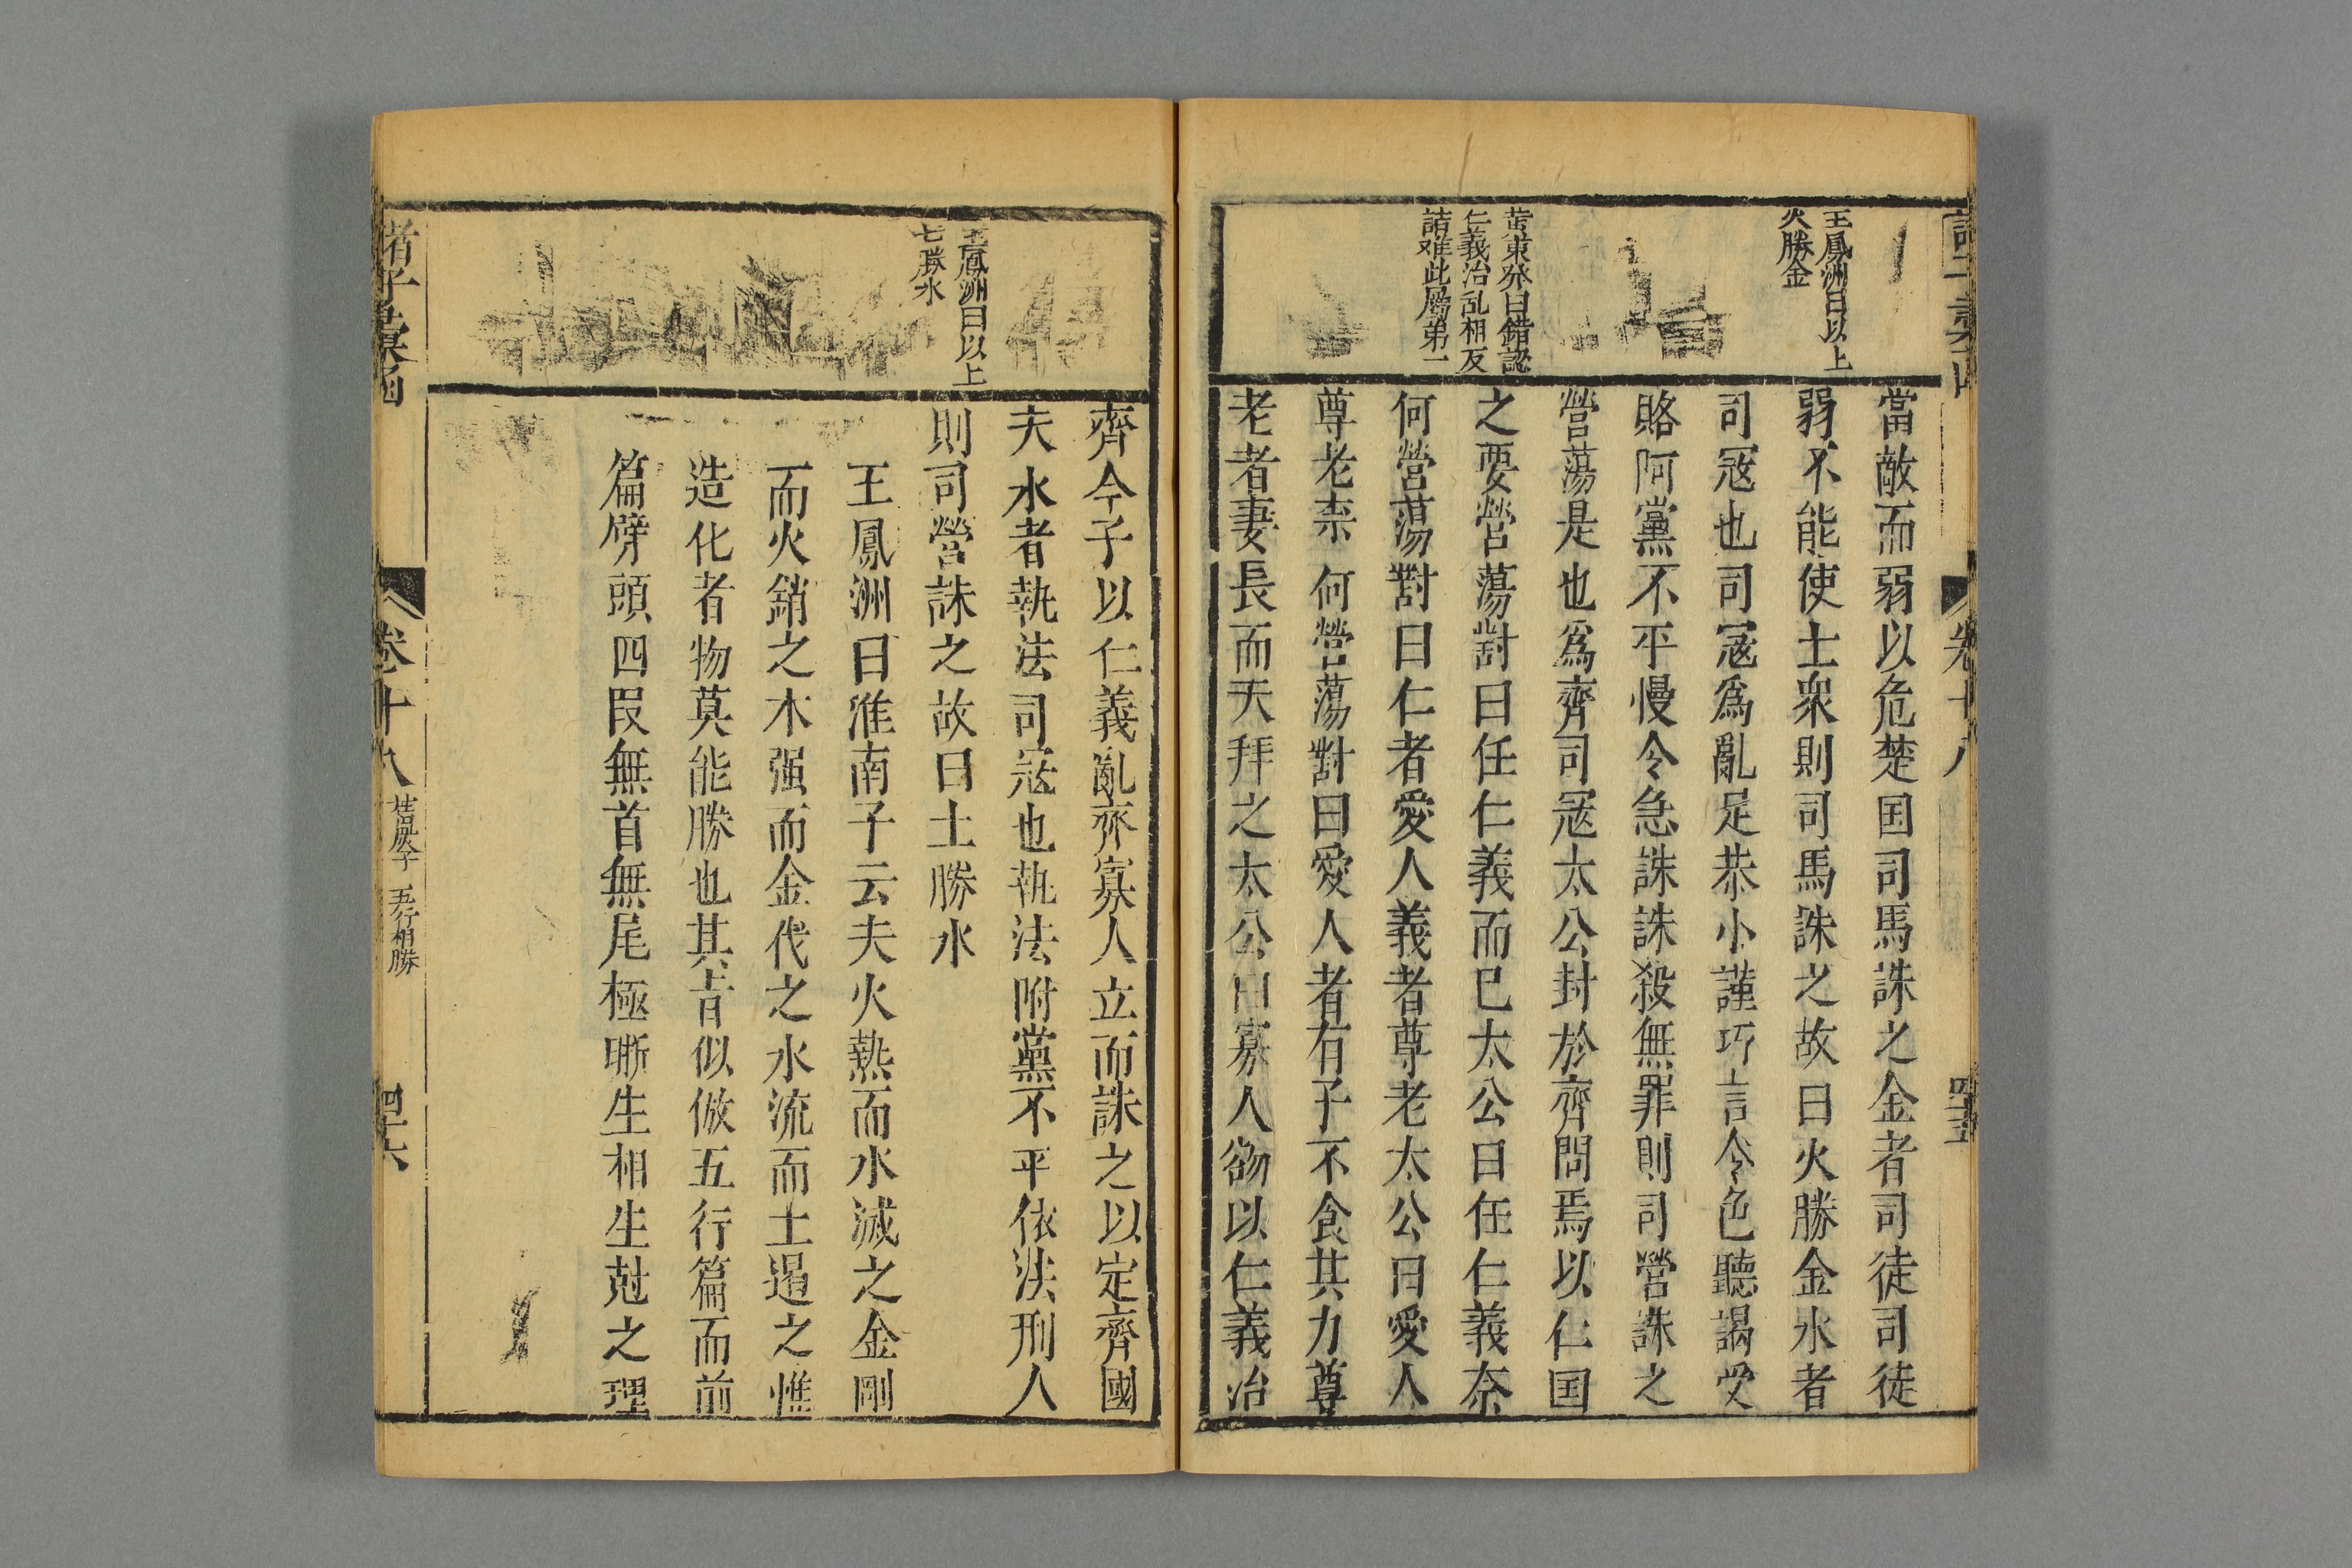 王鳳洲曰以上
火勝金
黃東發曰錯認
仁義治乱相反
詰难此屬第一
當敵而弱以危楚国司馬誅之金者司徒司徒
弱不能使士衆則司馬誅之故曰火勝金水者
司冦也司冦爲亂足恭小謹巧言令色聽謁受
賂阿黨不平慢令急誅誅殺無罪則司營誅之
營蕩是也爲齊司冦太公封於齊問焉以仁国
之要營蕩對曰任仁義而已太公曰任仁義奈
何營蕩對曰仁者愛人義者尊老太公曰愛人
尊老柰何營蕩對曰愛人者有子不食其力尊
老者妻長而夫拜之太公曰寡人欲以仁義治
卷十八
四十五
王鳳洲曰以上
土勝水
齊今子以仁義亂齊寡人立而誅之以定齊國
夫水者執法司冦也執法附黨不平依法刑人
則司營誅之故曰土勝水
王鳳洲曰淮南子云夫火熱而水滅之金剛
而火銷之木强而金伐之水流而土遏之惟
造化者物莫能勝也其旨似倣五行篇而前
篇劈頭四段無首無尾極晰生相生尅之理
諸子彙函
卷十八
桂巖子
五行相勝
四十六